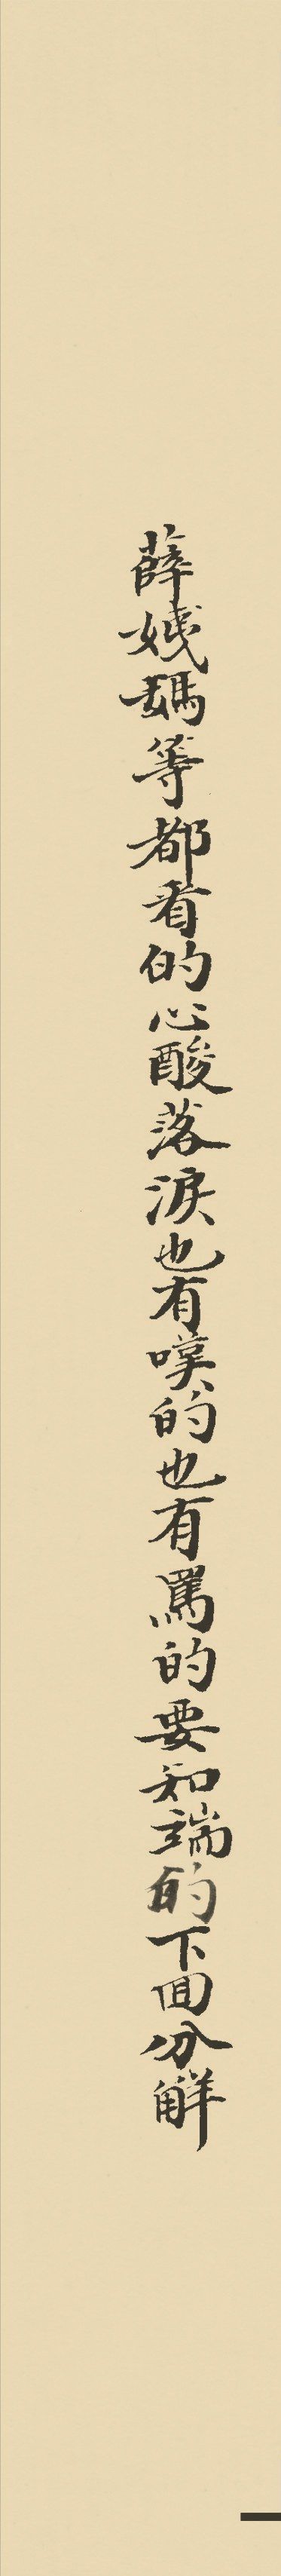 薛姨媽等都看的心酸落淚也有嘆的也有罵的要知端的下囬分解